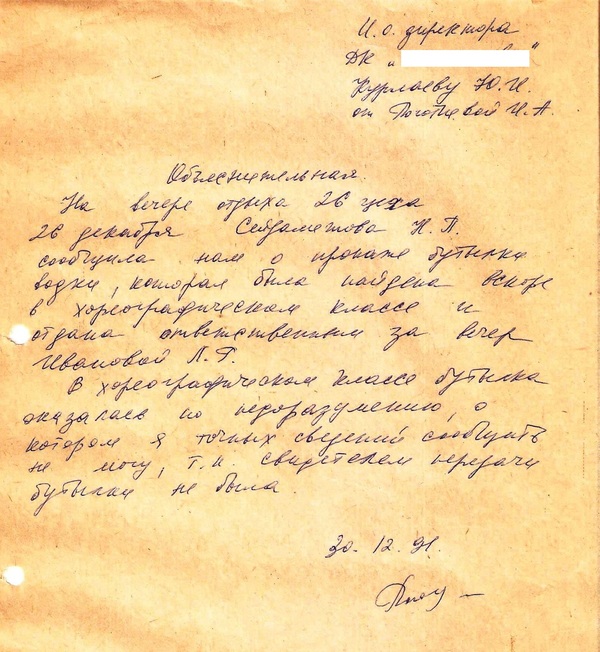 И.о. директора
ДК „ "
Курлаеву Ю.И.
от И.А.
Объяснительная.
На вечере отдыха 26 цеха
26 декабря Сейдаметова Н.П.
сообщила нам о пропаже бутылки
водки, которая была найдена вскоре
в хореографическом классе и
отдана ответственным за вечер
Ивановой Л.Г.
В хореографическом классе бутылка
оказалась по недоразумению, о
котором я точных сведений сообщить
не могу, т.к. свидетелем передачи
бутылки не была.
30.12.91.